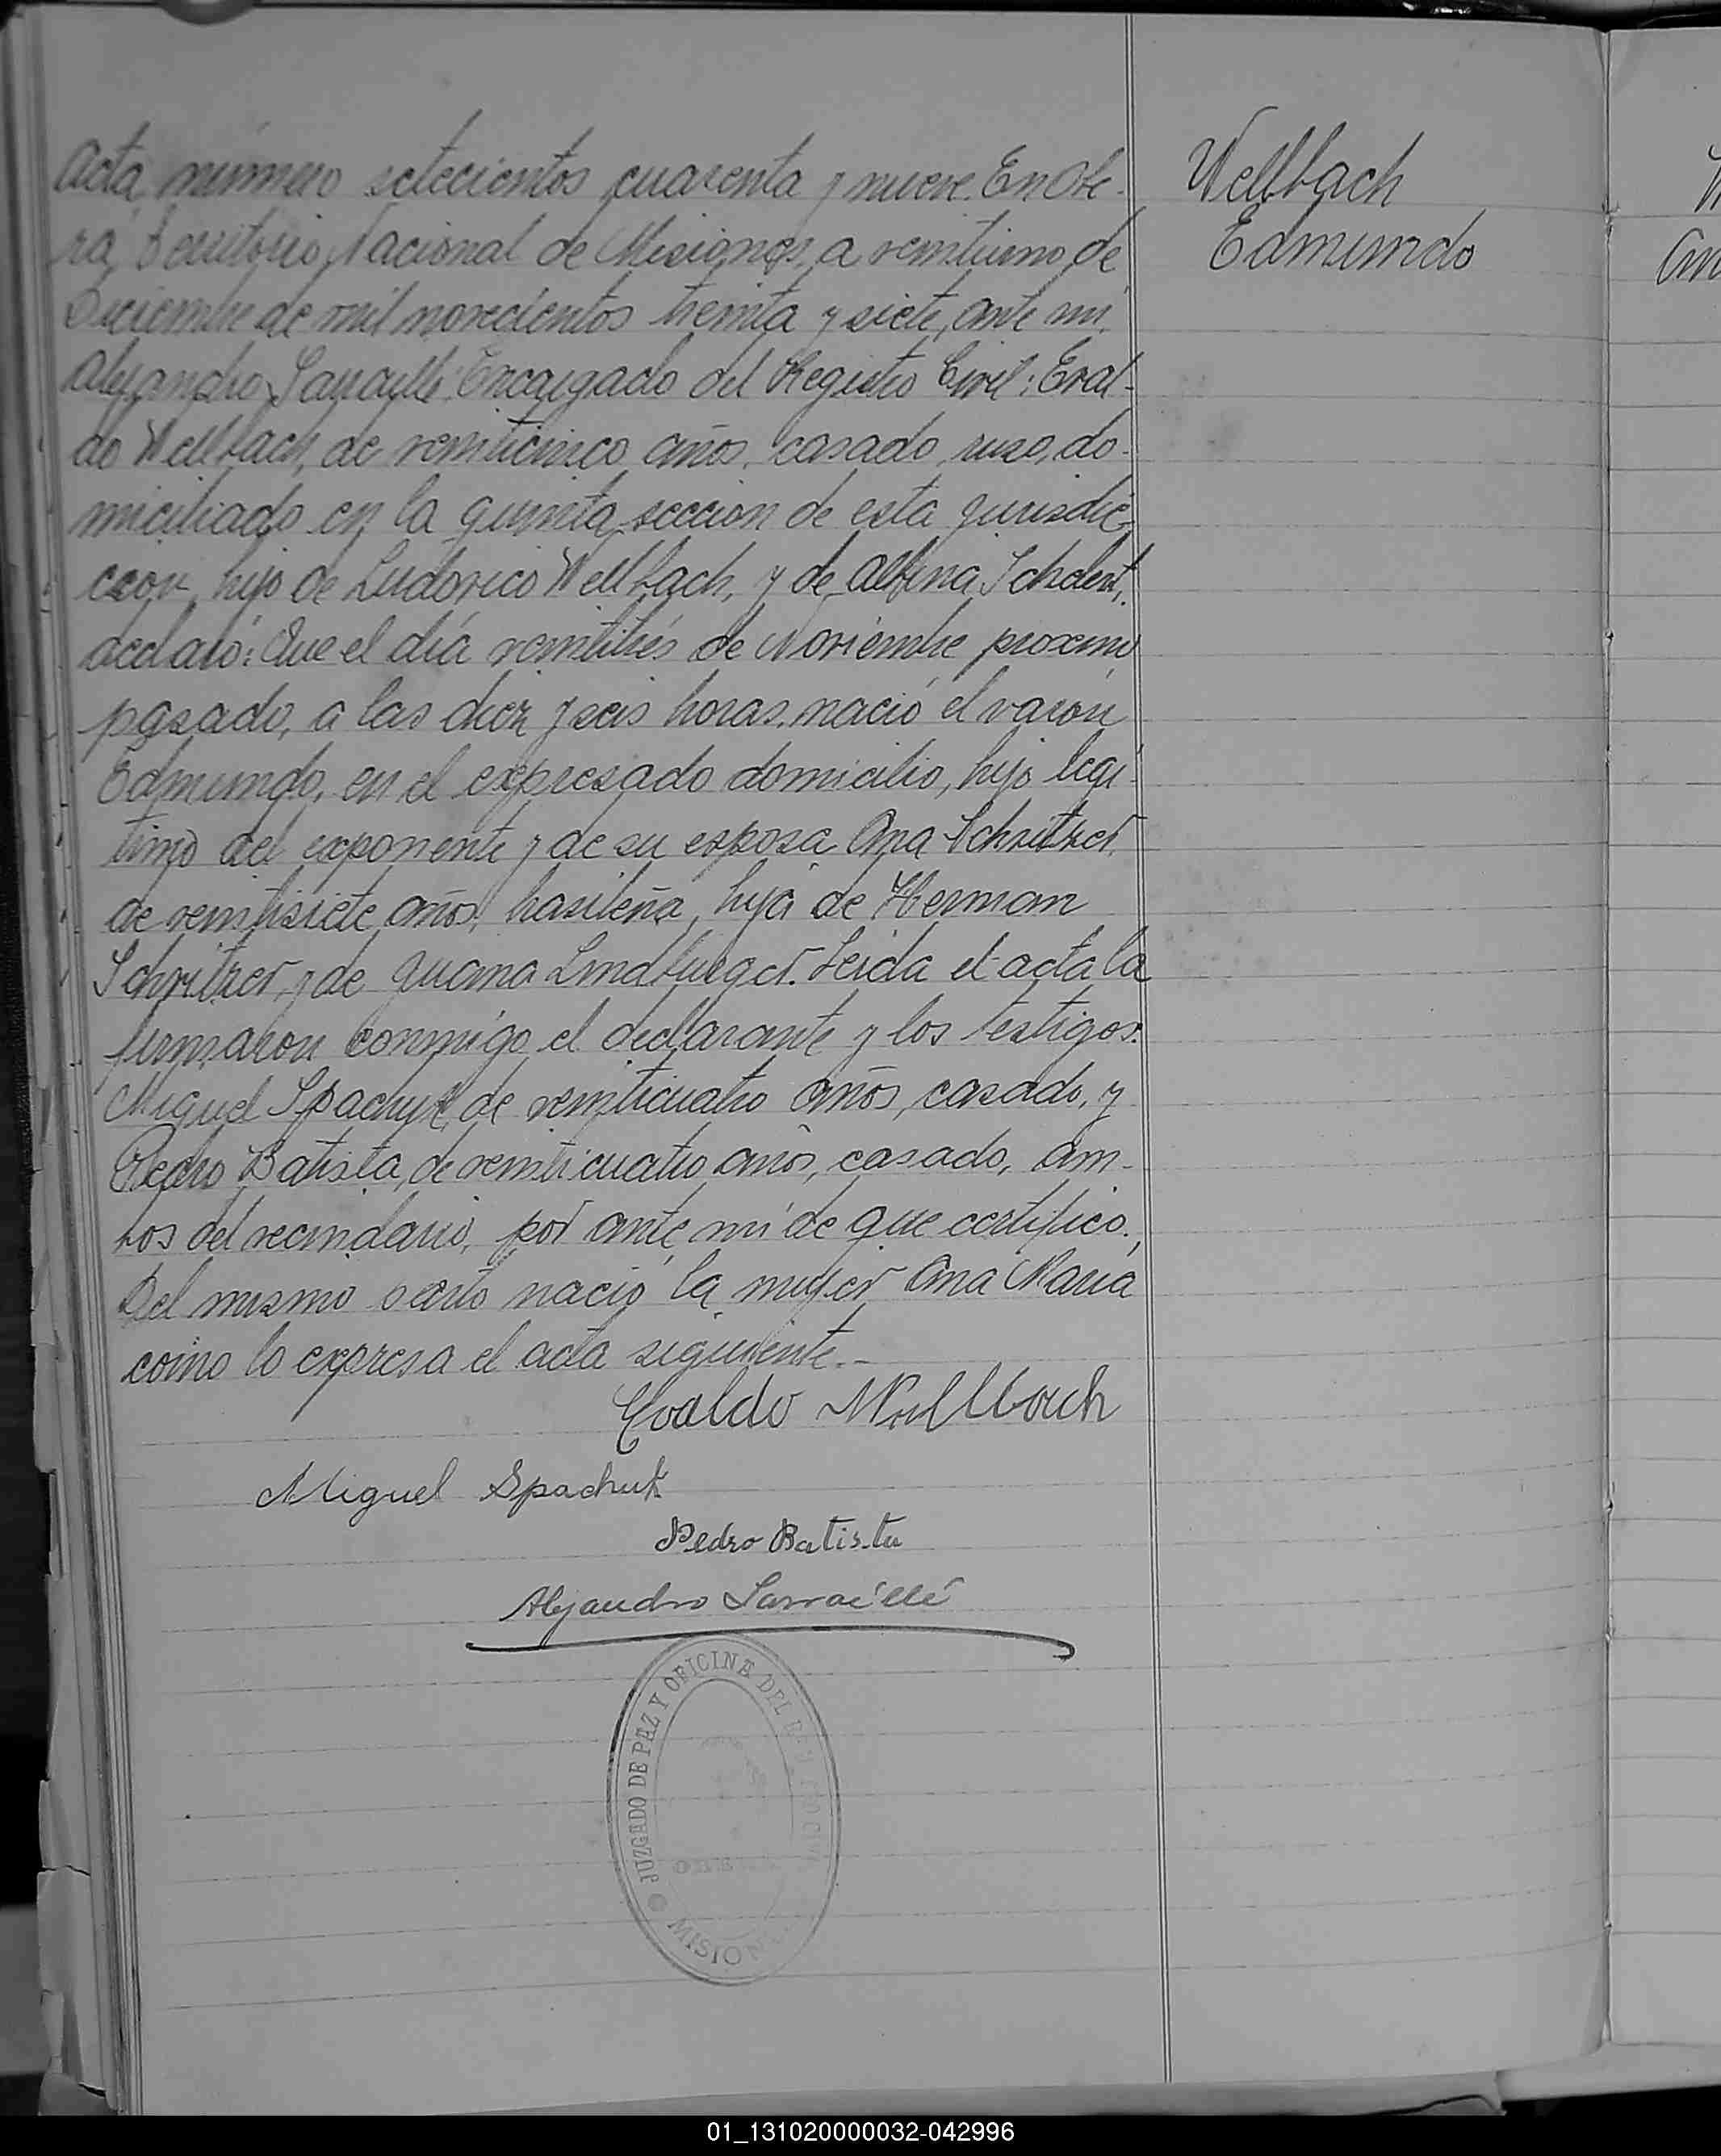 Acta número setecientos cuarenta y nueve. En Obe-
rá, Territorio Nacional de Misiones, a veintiuno de
Diciembre de mil novecientos treinta y siete, ante mi,
Alejandro Sarraillé Encargado del Registro Civil: Eval-
do Wellbach, de veinticinco años, casado, ruso, do-
miciliado en la quinta sección de esta jurisdic-
ccion, hijo de Ludovico Wellbach, y de Albina
declaró: Que el día veintitrés de Noviembre proximo
pasado, a las diez y seis horas, nació el varón
Edmundo, en el expresado domicilio, hijo legi-
timo del exponente y de su esposa Ana Schritzer,
de veintisiete años, brasileña, hija de Herman
Schritzer, y de Juana Lindburger. Leida el acta la
firmaron conmigo el declarante y los testigos:
Miguel Spachuk, de veinticuatro años, casado, y
Pedro Batista, de veinticuatro años, casado, am-
bos del vecindario, por ante mi de que certifico.,
Del mismo parto nació la mujer Ana Maria
como lo expresa el acta siguiente.-
Evaldo Wellbach
Miguel Spachuk
Pedro Batista
Alejandro Sarraillé
JUZGADO DE PAZ Y OFICINA DEL
OBERA
MISIONES
Wellbach
Edmundo
01_131020000032-042996